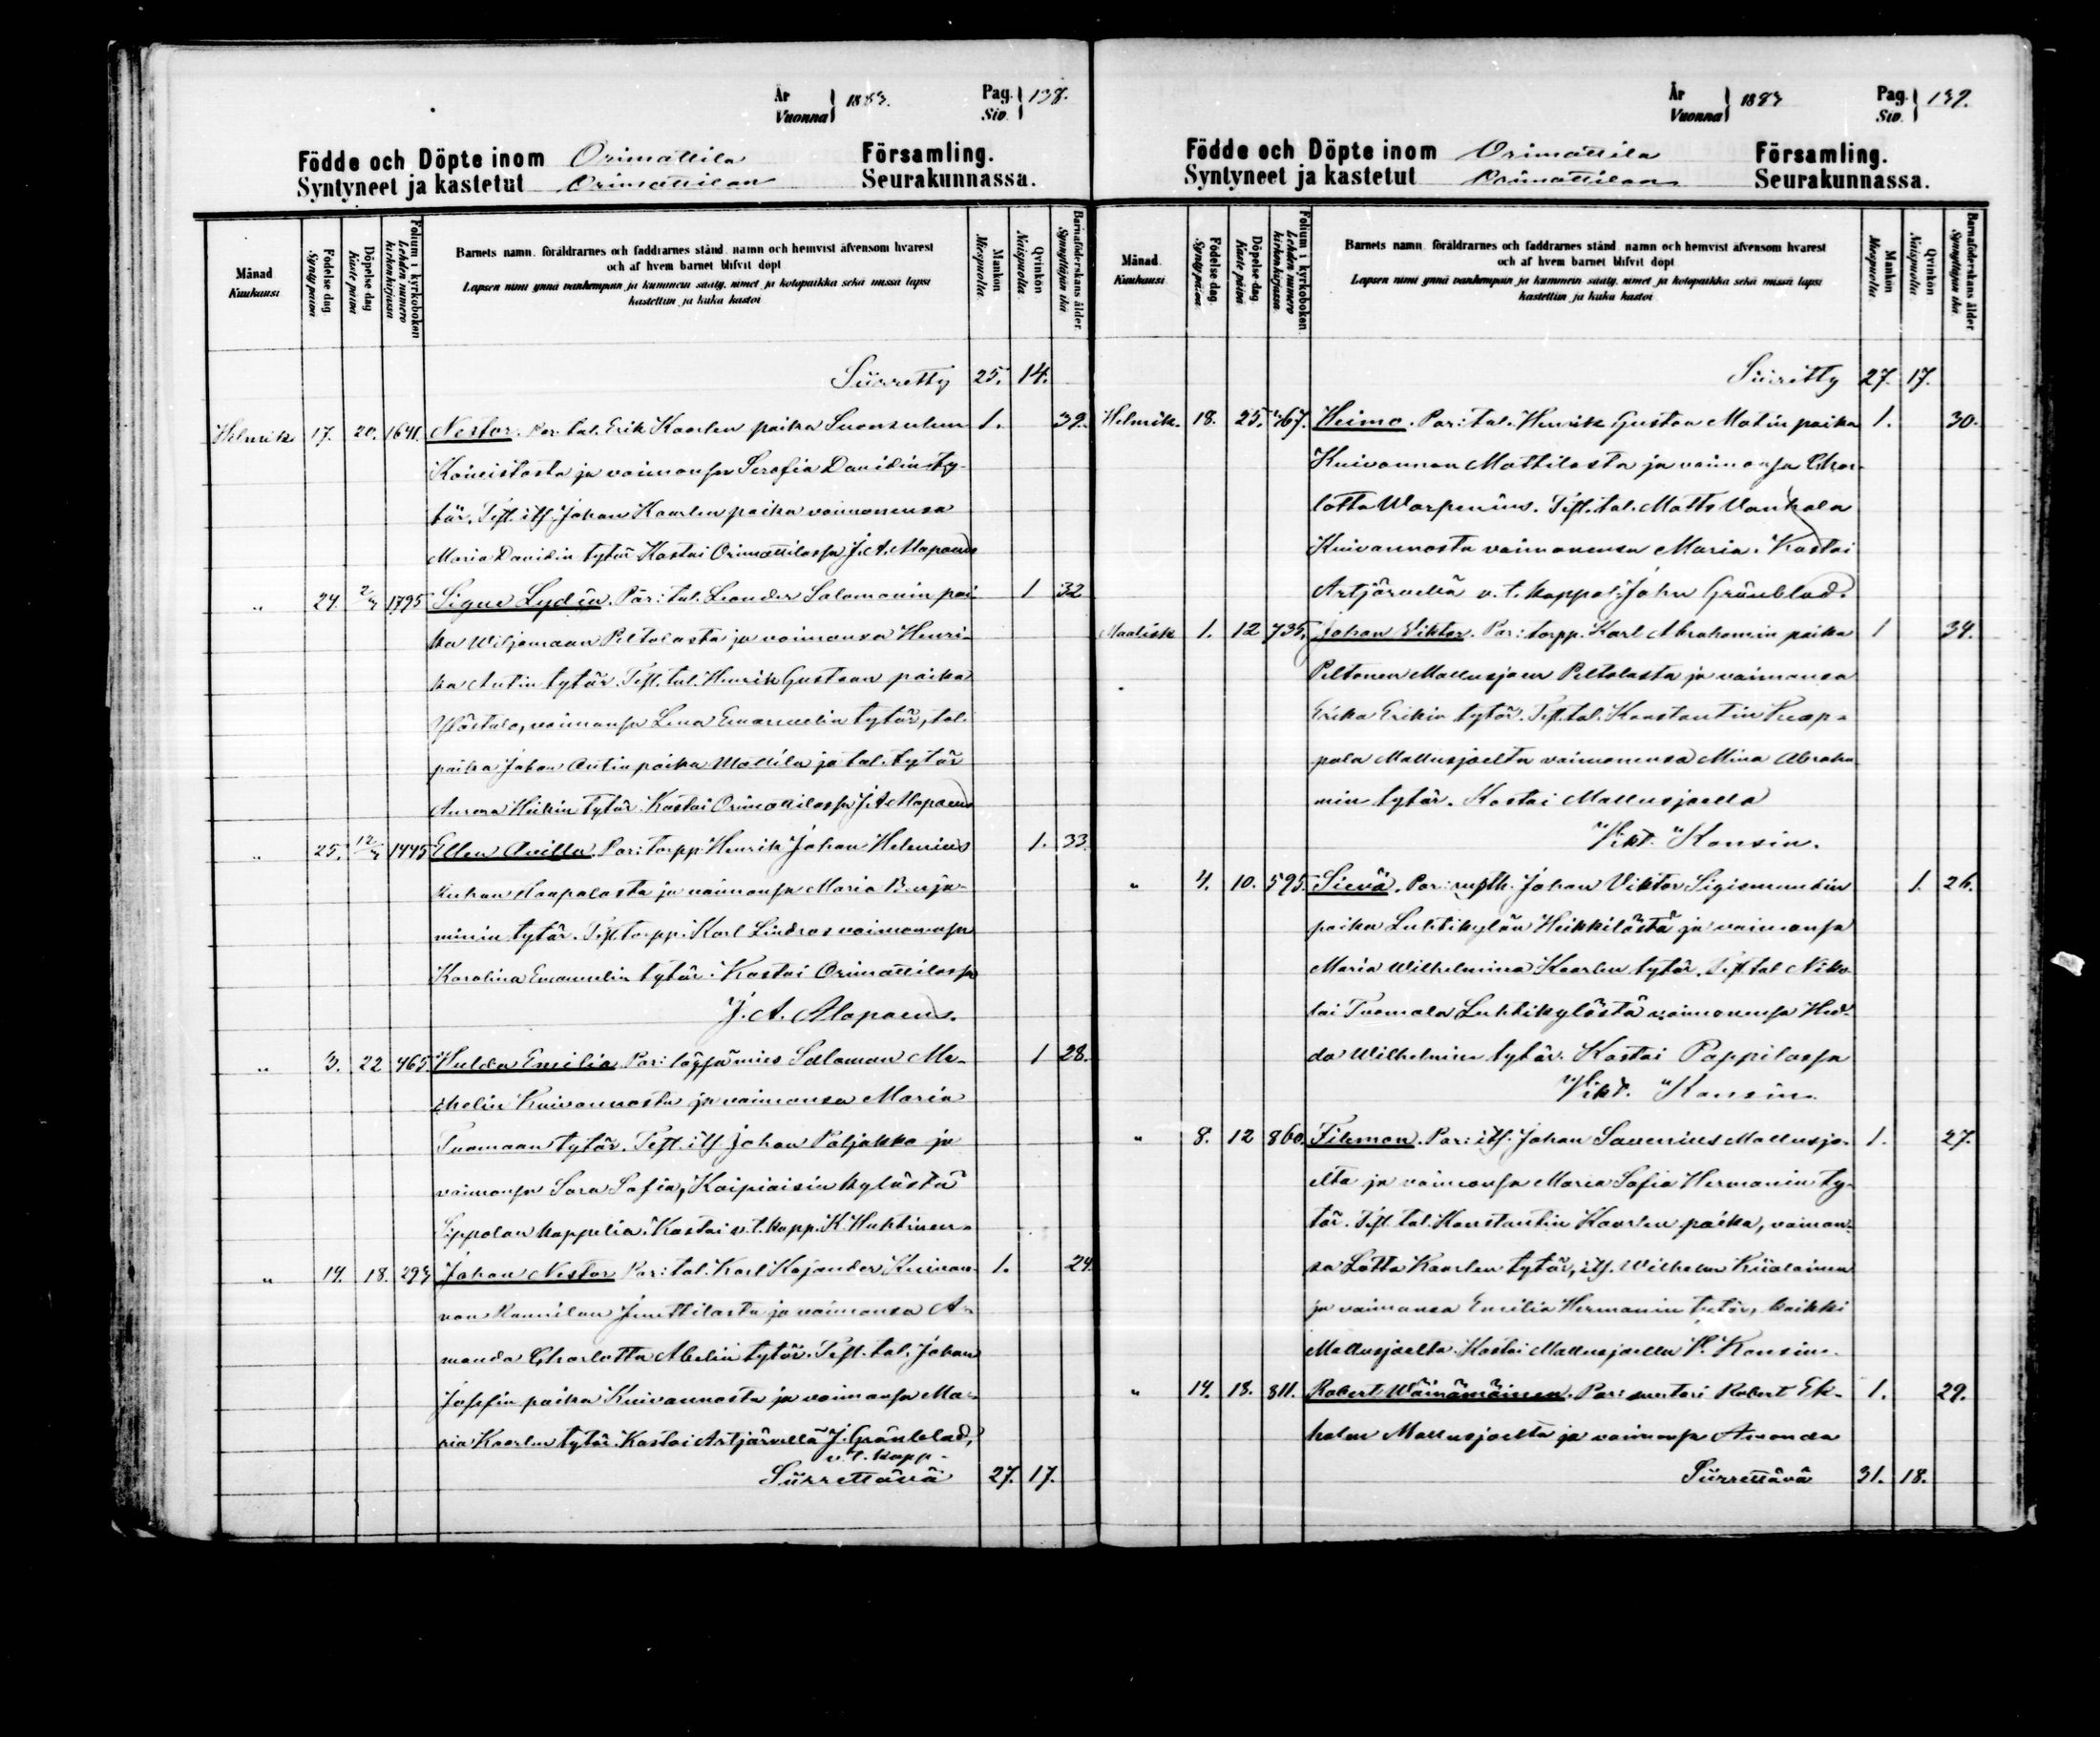 År
Vuonna
1883.
Pag.
Siv.
138.
Födde och Döpte inom Orimattila Församling.
Syntyneet ja kastetut Orimattilan Seurakunnassa.
Månad
Kuukausi
Födelse dag.
Syntypäivä
Döpelse dag
Kastepäivä
Folium i kyrkoboken
Lehden numero
kirkonkirjassa
Barnets namn, föräldrarnes och faddrarnes stånd, namn och hemvist äfvensom hvarest
och af hvem barnet blifvit döpt
Lapsen nimi ynnä vanhempain ja kummein sääty, nimet ja kotopaikka sekä missä lapsi
kastettiin ja kuka kastoi
Mankön
Miespuolia
Qvinkön
Naispuolia
Barnaföderskans ålder
Synnyttäjän ikä
Siirretty 25. 14.
Helmik. 17. 20. 1641. Nestor. Par: tal. Erik Kaarlen poika 1. 39.
Koivistosta ja vaimonsa Serafia Davidin ty-
tär. Test. its. Johan Kaarlen poika vaimonensa
Maria Davidin tytär Kastoi Orimattilassa J. A. Alopaeus
" 24. 2/3 1795 Signe Lydia. Par: tal. Leander Salomonin poi- 1 32
ka Wiljamaan Peltolasta ja vaimonsa Henri-
ka Antin tytär. Test. tal. Henrik Gustaan poika
Yöstalo, vaimonsa Lena Emanuelin tytär, tal.
poika Johan Antin poika Mattila ja tal. tytär
Aurora Heikin tytär. Kastoi Orimattilassa J. A. Alopaeus
" 25. 12/3 1445 Ellen Avilla. Par: torpp. Henrik Johan Helenius 1. 33.
Haapalasta ja vaimonsa Maria Benja-
minin tytär. Test. torpp. Karl Lindros vaimonensa
Karolina Emanuelin tytär. Kastoi Orimattilassa
J. A. Alopaeus.
" 3. 22 465. Hulda Emilia. Par: Salomon Me- 1 28.
Kuivannosta ja vaimonsa Maria
Tuomaan tytär. Test. its. Johan Paljakka ja
vaimonsa Sara Sofia, Kaipiaisin kylästä
Sippolan kappelia. Kastoi v. t. kapp. K. Huhtinen.
" 14. 18. 293 Johan Nestor. Par: tal. Karl Kajander Kuivan- 1. 24.
non ja vaimonsa A-
manda Charlotta Abelin tytär. Test. tal. Johan
Josefin poika Kuivannosta ja vaimonsa Ma-
ria Kaarlen tytär. Kastoi Artjärvellä J. Grönblad,
v. t. kapp.
Siirrettävä 27. 17.
År
Vuonna
1883
Pag.
Siv.
139.
Födde och Döpte inom Orimattila Församling.
Syntyneet ja kastetut Orimattilan Seurakunnassa.
Månad
Kuukausi
Födelse dag
Syntypäivä
Döpelse dag
Kastepäivä
Folium i kyrkoboken
Lehden numero
kirkonkirjassa
Barnets namn, föräldrarnes och faddrarnes stånd, namn och hemvist äfvensom hvarest
och af hvem barnet blifvit döpt
Lapsen nimi ynnä vanhempain ja kummein sääty, nimet ja kotopaikka sekä missä lapsi
kastettiin ja kuka kastoi
Mankön
Miespuolia
Qvinkön
Naispuolia
Barnaföderskans ålder
Synnyttäjän ikä
Siirretty 27. 17.
Helmik. 18. 25. 367. Heimo. Par: tal. Henrik Gustaa Matin poika 1. 30.
Kuivannon Mattilasta ja vaimonsa Char-
lotta Warpenius. Test. tal. Matts Vanhala
Kuivannosta vaimonensa Maria. Kastoi
Artjärvellä v. t. kappal. John Grönblad.
Maalisk 1. 12 735. Johan Viktor. Par: torpp. Karl Abrahamin poika 1 34.
Peltonen Mallusjoen Peltolasta ja vaimonsa
Erika Erikin tytär. Test. tal. Konstantin Knap-
pala Mallusjoelta vaimonensa Mina Abraha
min tytär. Kastoi Mallusjoella
Vikt. Konsin.
" 4. 10. 595. Sievä. Par: Johan Viktor Sigismundin 1. 26.
poika Luhtikylän Heikkilästä ja vaimonsa
Maria Wilhelmina Kaarlen tytär. Test. tal Niko-
lai Tuomala Luhtikylästä vaimonensa Hed-
da Wilhelmin tytär. Kastoi Pappilassa
Vikt. Konsin.
" 8. 12 860. Filemon. Par: its. Johan Savenius Mallusjo- 1. 27.
elta ja vaimonsa Maria Sofia Hermanin ty-
tär. Test. tal. Konstantin Kaarlen poika, vaimon-
sa Lotta Kaarlen tytär, its. Wilhelm Kiialainen
ja vaimonsa Emilia Hermanin tytär, kaikki
Mallusjoelta. Kastoi Mallusjoella V. Konsin.
" 14. 18. 811. Robert Wäinämöinen. Par: Robert Ek- 1. 29.
holm Mallusjoelta ja vaimonsa Amanda
Siirrettävä 31. 18.